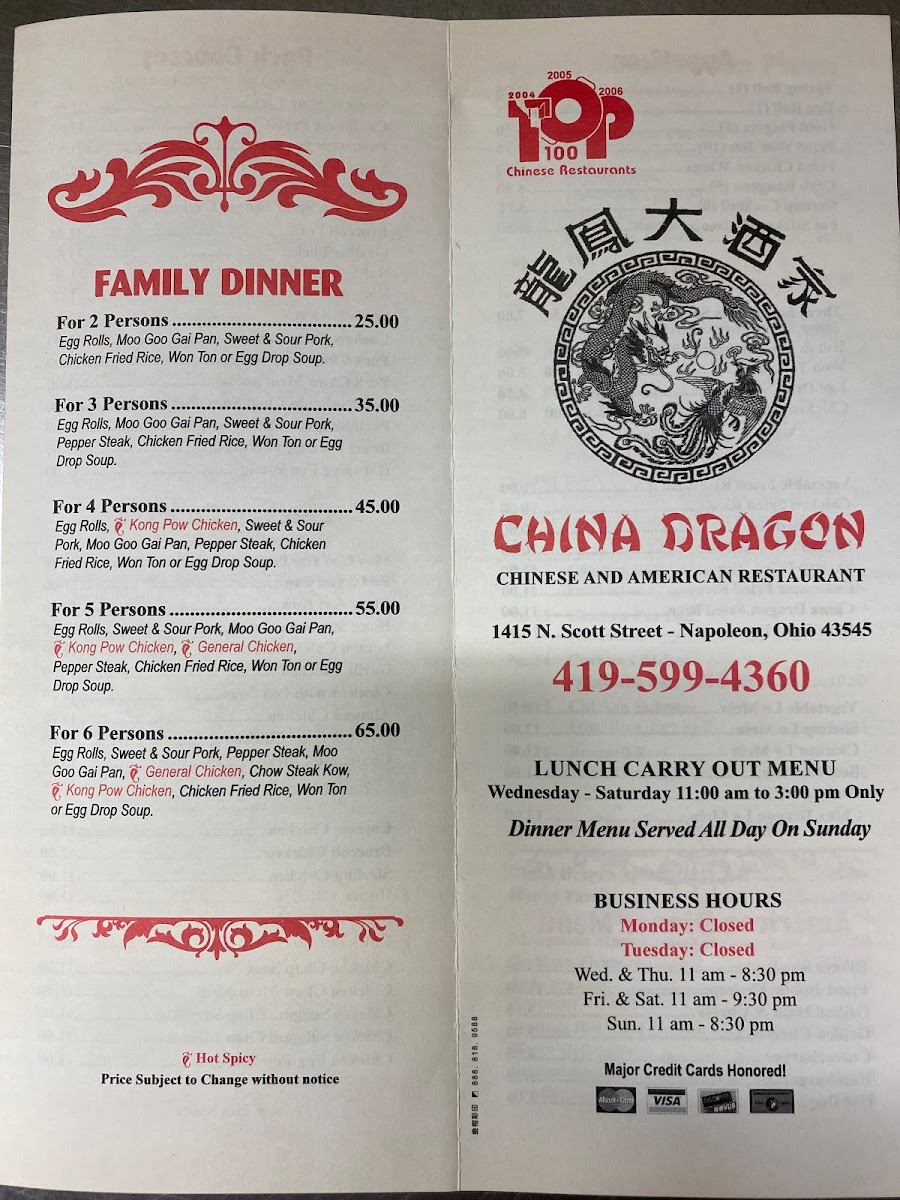 FAMILY DINNER
For 2 Persons ................................... 25.00
Egg Rolls, Moo Goo Gai Pan, Sweet & Sour Pork,
Chicken Fried Rice, Won Ton or Egg Drop Soup.
For 3 Persons ................................... 35.00
Egg Rolls, Moo Goo Gai Pan, Sweet & Sour Pork,
Pepper Steak, Chicken Fried Rice, Won Ton or Egg
Drop Soup.
For 4 Persons ................................... 45.00
Egg Rolls, Kong Pow Chicken, Sweet & Sour
Pork, Moo Goo Gai Pan, Pepper Steak, Chicken
Fried Rice, Won Ton or Egg Drop Soup.
For 5 Persons ................................... 55.00
Egg Rolls, Sweet & Sour Pork, Moo Goo Gai Pan,
Kong Pow Chicken, General Chicken,
Pepper Steak, Chicken Fried Rice, Won Ton or Egg
Drop Soup.
For 6 Persons ................................... 65.00
Egg Rolls, Sweet & Sour Pork, Pepper Steak, Moo
Goo Gai Pan, General Chicken, Chow Steak Kow,
Kong Pow Chicken, Chicken Fried Rice, Won Ton
or Egg Drop Soup.
Hot Spicy
Price Subject to Change without notice
2004 2005 2006
TOP
100
Chinese Restaurants
龍鳳大酒家
CHINA DRAGON
CHINESE AND AMERICAN RESTAURANT
1415 N. Scott Street - Napoleon, Ohio 43545
419-599-4360
LUNCH CARRY OUT MENU
Wednesday - Saturday 11:00 am to 3:00 pm Only
Dinner Menu Served All Day On Sunday
BUSINESS HOURS
Monday: Closed
Tuesday: Closed
Wed. & Thu. 11 am - 8:30 pm
Fri. & Sat. 11 am - 9:30 pm
Sun. 11 am - 8:30 pm
Major Credit Cards Honored!
MasterCard VISA
888. 818. 9588